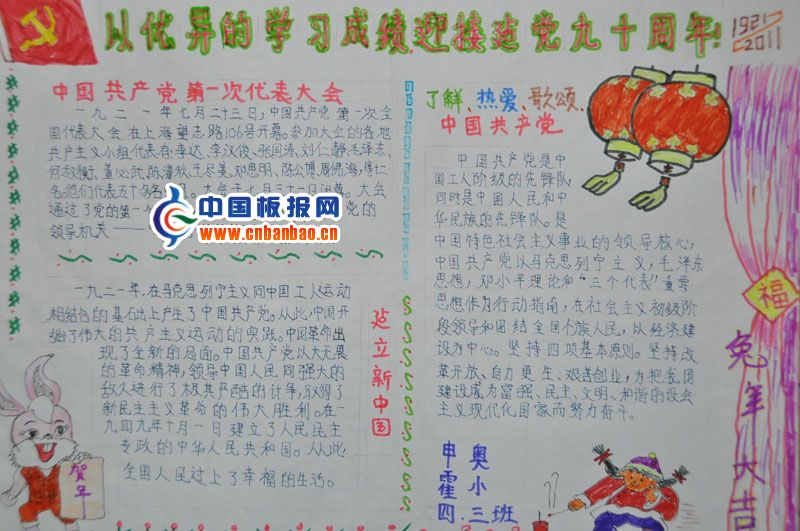 以优异的学习成绩迎接建党九十周年!
1921
2011
中国共产党第一次代表大会
一九二一年七月二十三日,中国共产党第一次全
国代表大会在上海望志路106号开幕。参加大会的各地
共产主义小组代表有:李达、李汉俊、张国焘、刘仁静、毛泽东、
何叔衡、董必武、陈潭秋、王尽美、邓恩明、陈公博、周佛海,
名。他们代表五十多名
大会
通过了党的第一
党的
领导机
中国板报网
www.cnbanbao.cn
一九二一年,在马克思列宁主义同中国工人运动
相结合的基础上产生了中国共产党。从此,中国开
始了伟大的共产主义运动的实践。中国革命出
现了全新的局面。中国共产党以大无畏
的革命精神,领导中国人民同强大的
敌人进行了极其严酷的斗争,取得了
新民主主义革命的伟大胜利。在一
九四九年十月一日建立了人民民主
专政的中华人民共和国。从此
全国人民过上了幸福的生活。
建立新中国
贺年
了解、热爱、歌颂、
中国共产党
中国共产党是中
国工人阶级的先锋队,
同时是中国人民和中
华民族的先锋队。是
中国特色社会主义事业的领导核心;
中国共产党以马克思列宁主义,毛泽东
思想,邓小平理论和“三个代表”重要
思想作为行动指南,在社会主义初级阶
段领导和团结全国各族人民,以经济建
设为中心。坚持四项基本原则。坚持改
革开放、自力更生、艰苦创业,为把我国
建设成为富强、民主、文明、和谐的社会
主义现代化国家而努力奋斗。
申奥
霍小
四.三班
福
兔年大吉